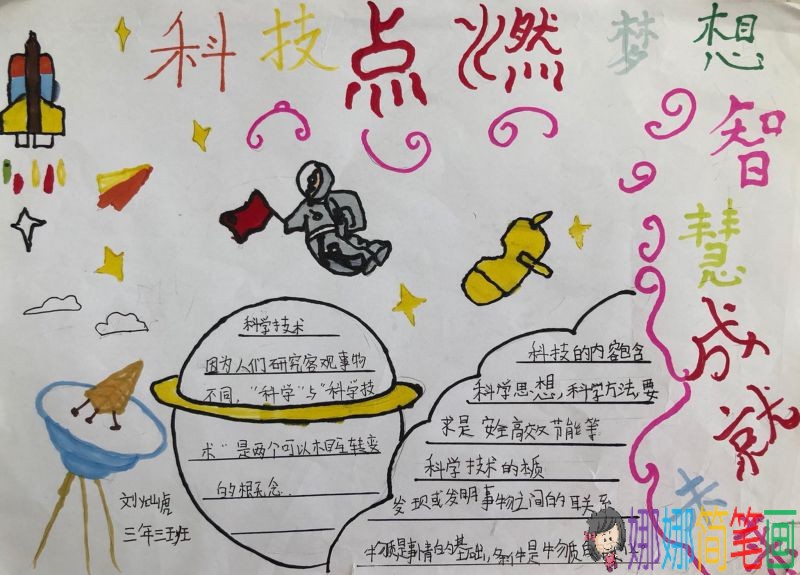 科技点燃梦想
智慧成就未
科学技术
因为人们研究客观事物
不同，“科学”与“科学技
术”是两个可以相互转变
的概念.
刘灿虎
三年三班
科技的内容包含
科学思想，科学方法，要
求是安全高效节能等
科学技术的本质
发现或发明事物之间的联系
物质是事情的基础，条件是物质
娜娜简笔画